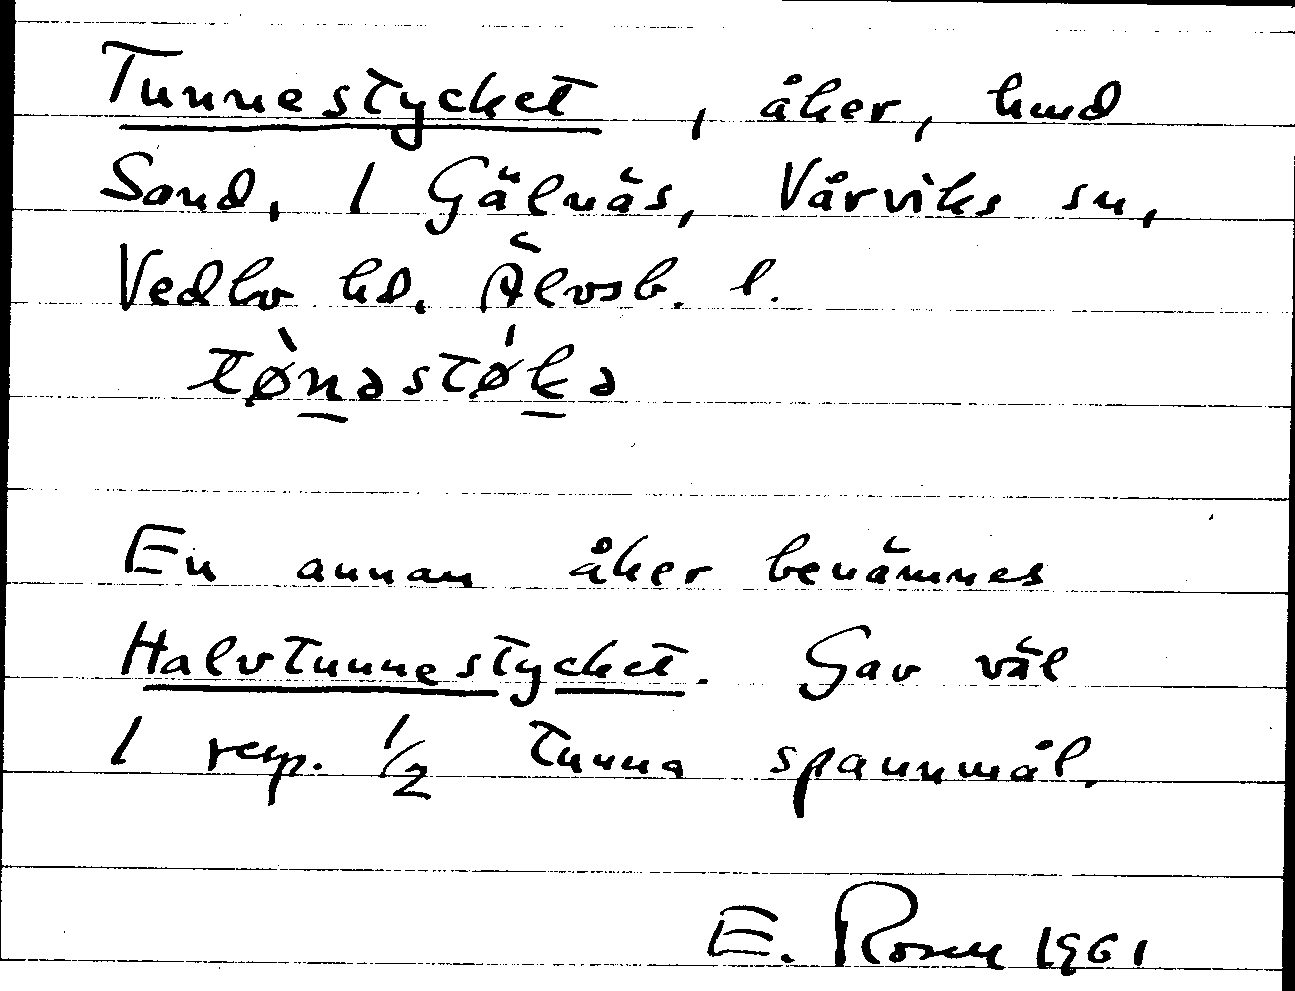 Tunnestycket, åker, hmd
Sand, 1 Gälnäs, Vårviks sn,
Vedbo hd. Älvsb. l.
tø̀nəstǿkə
En annan åker benämnes
Halvtunnestycket. Gav väl
1 resp. 1/2 tunna spannmål.
E. Rosen 1961